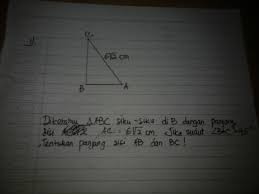 C
6√2 cm
B A
Diketahui △ABC siku-siku di B dengan panjang
sisi AC = 6√2 cm. Jika sudut ∠BAC = 45°
Tentukan panjang sisi AB dan BC!